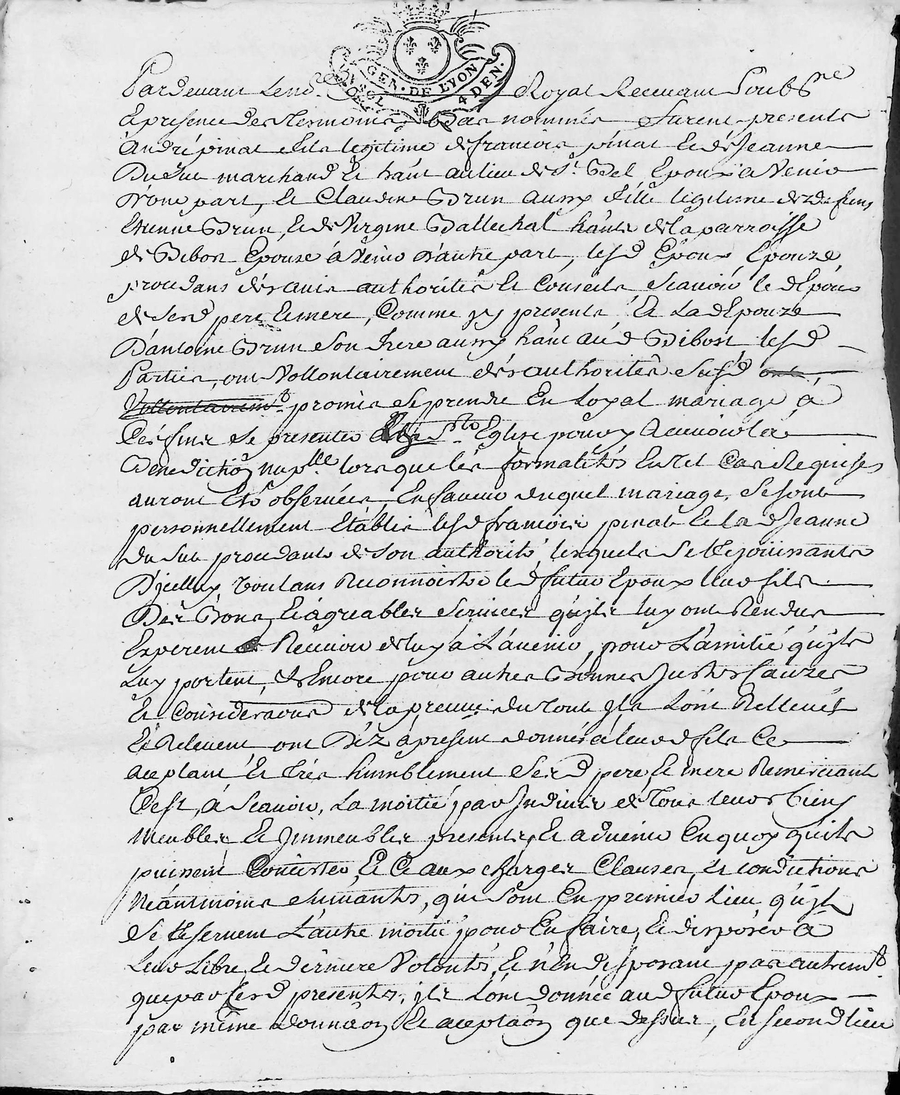 GEN. DE LYON
SOL 4 DEN.
Pardevant Le nore Royal Recevant Soubsne
et presence des tesmoins Bas nommés furent presents
André pinat fils legitime de francois pinat et de Jeanne
Dusut marchand et hant au lieu de st Bel Epoux à Venir
D'une part, et Claudine Brun aussy fille legitime de deffuns
Etienne Brun, et de Virgine Ballechal hante de la parroisse
de Bibost Epouse à Venir d'autre part, lesd Epoux Epouze
procedans des avis authorités et Conseils scavoir led Epoux
de sesd pere et mere, Comme icy presents Et Lad Epouze
D'antoine Brun son frere aussy hant aud Bibost lesd
Parties, ont Vollontairement des authorités susd ont
Vollontairemt promis se prendre En Loyal mariage à
Ces fins se presenter à la Ste Eglise pour y Recevoir la
Benediction nuplle lorsque les formalités En tel Cas Requises
auront Eté observées, En faveur duquel mariage, se sont
personnellement Etablis lesd francois pinat Et lad Jeanne
du sut procedante de son authorité lesquels
D'iceluy voulans Reconnoistre led futur Epoux leur fils
Des Bons, et agreables services qu'ils luy ont Rendus
Esperent Recevoir de luy à L'avenir, pour L'amitié qu'ils
Luy portent, Et Encore pour autres Bonnes Justes Causes
Et Considerations de la preuve du tout ils L'ont Rellevés
Et Relevent ont Déz à present donné à leurd fils Ce
aceptant Et Trés humblement sesd pere Et mere Remerciant
C'est, à scavoir, La moitié par Indivis de tous leurs biens
Meubles Et Jmmeubles presents, Et advenir En quoy qu'ils
puissent Concister, Et Ce aux charges Clauses, Et conditions
Néantmoins suivants, qui sont En premier Lieu qu'ils
se Reservent L'autre moitié pour En faire, Et disposer à
Leur Libre, Et derniere Volonté, Et n'En disposant par autremt
que par Cesd presentes, ils L'ont donnée aud futur Epoux
par même donnãon Et aceptãon que dessus, En second lieu